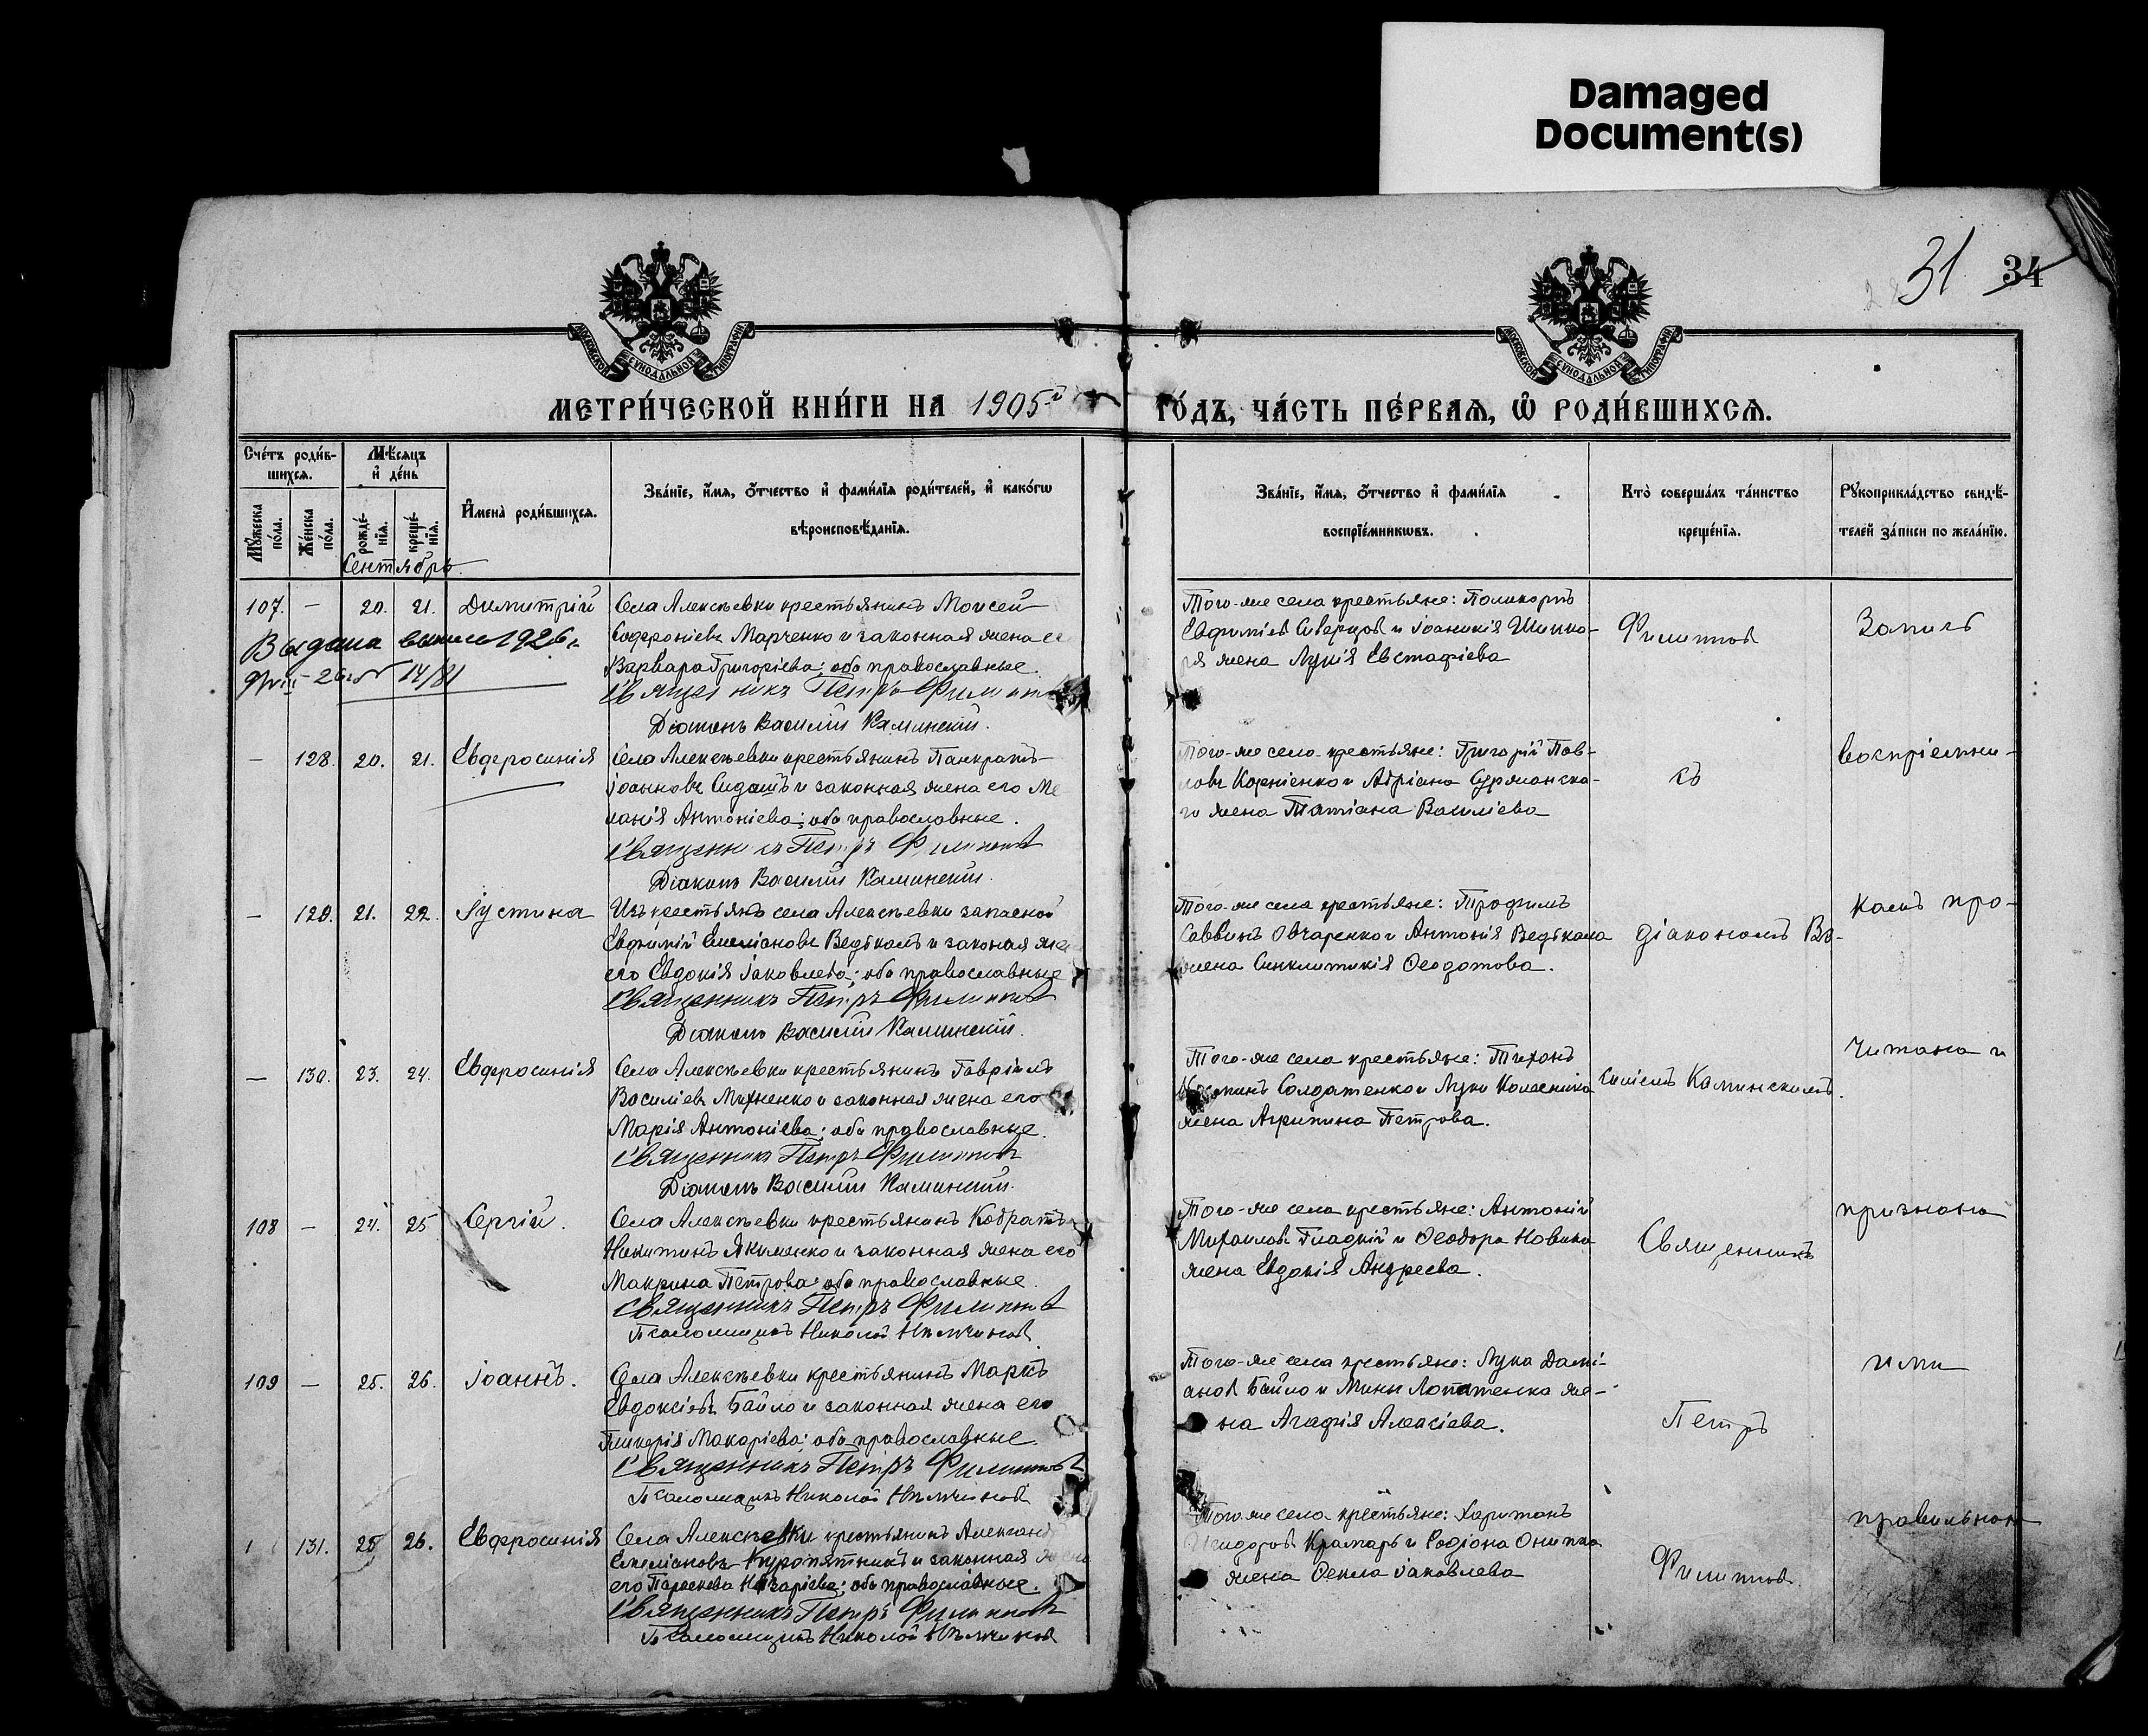 Damaged
Document(s)
31
34
МОСКОВСКОЙ СѴНОДАЛЬНОЙ ТИПОГРАФІИ
МОСКОВСКОЙ СѴНОДАЛЬНОЙ ТИПОГРАФІИ
МЕТРИ́ЧЕСКОЙ КНИ́ГИ НА 1905й
ГО́ДЪ, ЧА́СТЬ ПЕ́РВАЯ, Ѡ РОДИ́ВШИХСЯ.
Сче́тъ роди́в-
шихся.
Мѣ́сяцъ
и де́нь
Мꙋ́жеска по́ла.
Же́нска по́ла.
рожде́-
нїя.
креще́-
нїя.
Имена̀ роди́вшихся.
Зва́нїе, и́мя, ѻ́тчество и фами́лїя роди́телей, и како́гѡ
вѣроисповѣ́данїя.
Зва́нїе, и́мя, ѻ́тчество и фами́лїя
воспрїе́мникѡвъ.
Кто̀ соверша́лъ та́инство
креще́нїя.
Рꙋкоприкла́дство свидѣ́-
телей за́писи по жела́нїю.
Сентябрь.
107. — 20. 21. Димитрій
Села Алексѣевки крестьянинъ Моисей
Софроніевъ Марченко и законная жена ег
Варвара Григоріева; оба православные.
Священникъ Петръ Филиппов
Діаконъ Василій Каминскій.
Выдана 1926 г.
14/81
Того-же села крестьяне: Поликарпъ
Евфиміевъ Сиверцов и Іоаникія Шинка-
ря жена Лукія Евстафіева
Филиппов
Запись
— 128. 20. 21. Евфросинія
Села Алексѣевки крестьянинъ Панкратъ
Іоанновъ Сидашъ и законная жена его Ме
ланія Антоніева; оба православные.
Священникъ Петръ Филиппов
Діаконъ Василій Каминскій.
Того-же села крестьяне: Григорій Пав-
ловъ Корніенко и Адріана Сурманска-
го жена Татіана Василіева
къ
воспріемни-
— 129. 21. 22. Іустина
Изъ крестьянъ села Алексѣевки запасной
Евфимій Емеліановъ Ведькалъ и законая же
его Евдокія Іаковлева; оба православные
Священникъ Петръ Филиппов
Діаконъ Василій Каминскій.
Того-же села крестьяне: Трофимъ
Саввинъ Овчаренко и Антонія Ведькала
жена Синклитикія Ѳеодотова.
діакономъ Ва-
камъ про-
— 130. 23. 24. Евфросинія
Села Алексѣевки крестьянинъ Гавріилъ
Василіевъ Михненко и законная жена его
Марія Антоніева; оба православные.
Священникъ Петръ Филиппов
Діаконъ Василій Каминскій.
Того-же села крестьяне: Тихонъ
Солдатенко и Луки Колесника
жена Агрипина Петрова.
силіемъ Каминскимъ.
читана и
108 — 24. 25 Сергій.
Села Алексѣевки крестьянинъ Кодратъ
Никитинъ Якименко и законная жена его
Макрина Петрова; оба православные.
Священникъ Петръ Филиппов
Псаломщикъ Николай Нѣмчинов
Того-же села крестьяне: Антоній
Михаиловъ Гладкій и Ѳеодора Новика
жена Евдокія Андреева.
Священникъ
признана
109 — 25. 26. Іоаннъ.
Села Алексѣевки крестьянинъ Маркъ
Евдокіевъ Байло и законная жена его
Гликерія Макаріева; оба православные.
Священникъ Петръ Филиппов
Псаломщикъ Николай Нѣмчинов
Того-же села крестьяне: Лука Дамі-
анов Байло и Мины Лопатенка же-
на Агафія Алексіева.
Петръ
ими
131. 25 26. Евфросинія
Села Алексѣевки крестьянинъ Александ
Емеліановъ Куропятникъ и законная жена
его Параскева Назаріева; оба православные.
Священникъ Петръ Филиппов
Псаломщикъ Николай Нѣмчинов
Того-же села крестьяне: Харитонъ
Исидоров Крамарь и Родіона Онипка
жена Ѳекла Іаковлева
Филиппов.
правильною